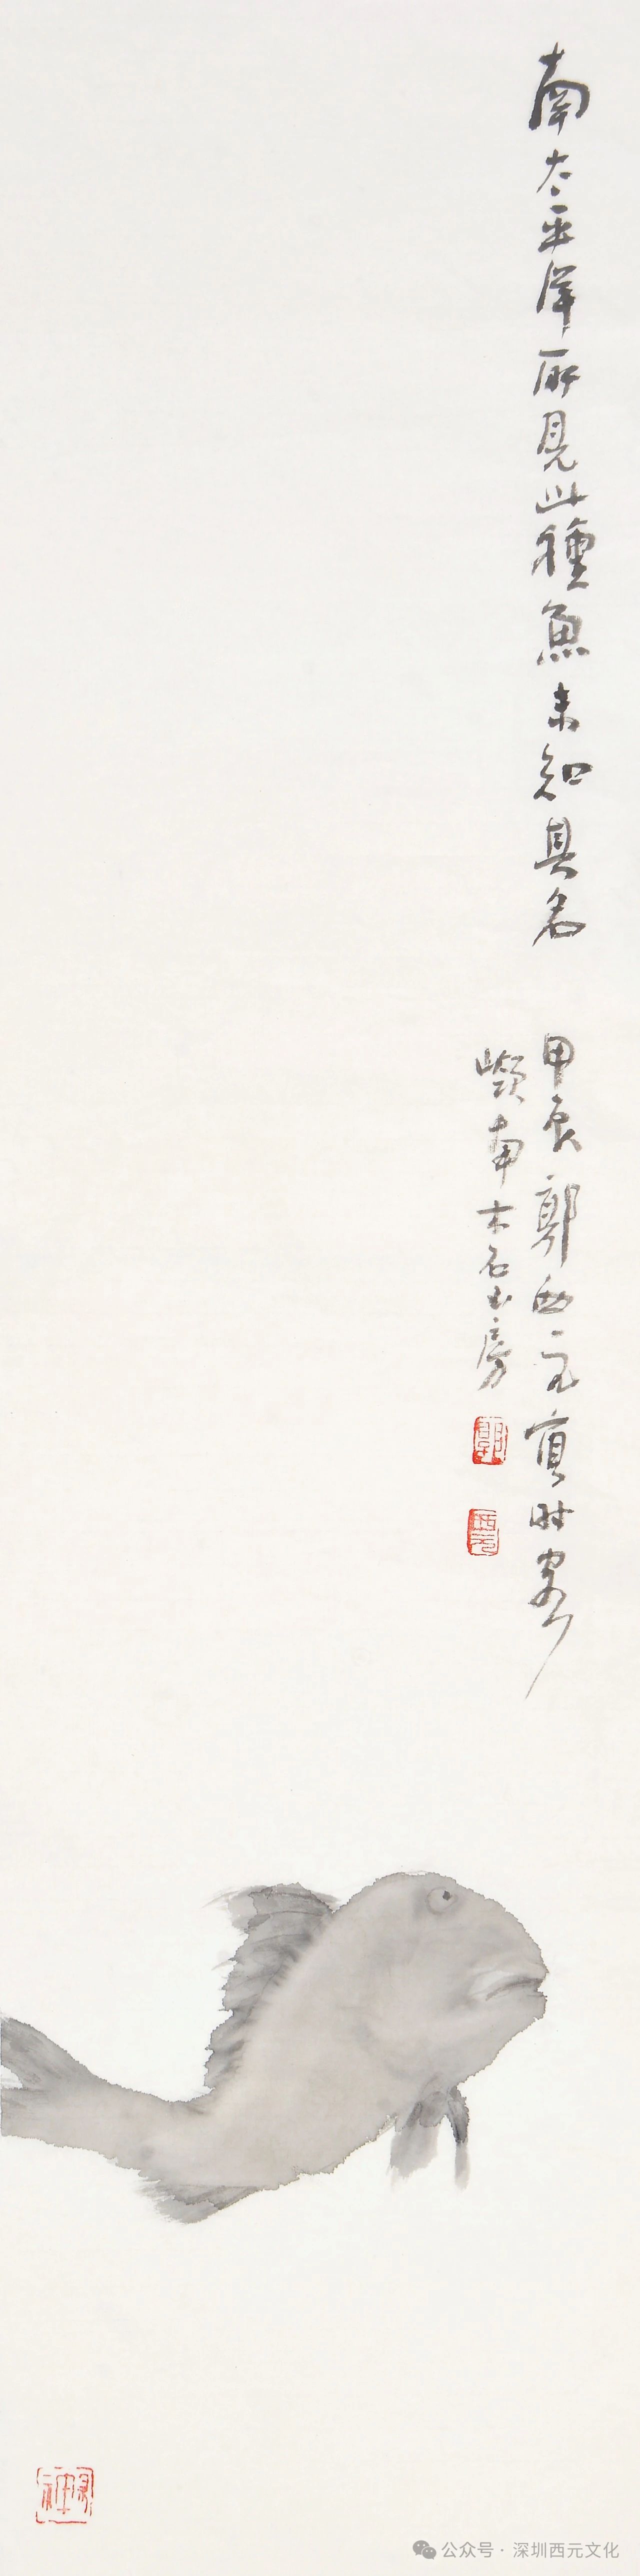 南太平洋所见此種魚未知其名
甲辰郭西元寅時写
嶺南木石山房
郭
西元
公众号·深圳西元文化